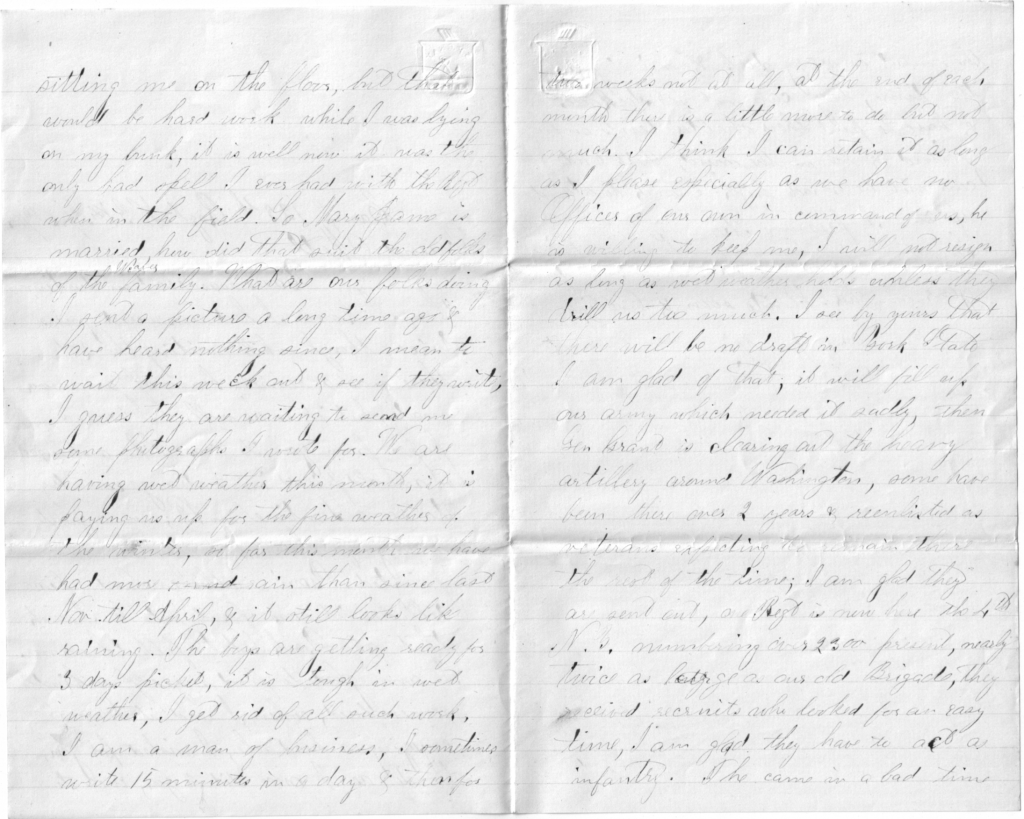 sitting me on the floor, but that
would be hard work while I was lying
on my bunk, it is well now it was the
only bad spell I ever had with the Regt
when in the field. So Mary Frame is
married, how did that suit the oldfolks
of the family. What are our folks doing
I sent a picture a long time ago &
have heard nothing since, I mean to
wait this week out & see if they write,
I guess they are waiting to send me
some photographs I wrote for. We are
having wet weather this month, it is
paying us up for the fine weather of
the winter, so far this month we have
had more rain than since last
Nov till April, & it still looks like
raining. The boys are getting ready for
3 days picket, it is tough in wet
weather, I get rid of all such work.
I am a man of business, I sometimes
write 15 minutes in a day & then for
weeks not at all, at the end of each
month there is a little more to do but not
much. I think I can retain it as long
as I please especially as we have no
Officer of our own in command of us, he
is willing to keep me, I will not resign
as long as wet weather holds unless they
drill us too much. I see by yours that
there will be no draft in York State
I am glad of that; it will fill up
our army which needed it sadly, then
Gen Grant is clearing out the heavy
artillery around Washington, some have
been there over 2 years & reenlisted as
veterans expecting to remain there
the rest of the time; I am glad they
are sent out, a Regt is now here the 4th
N.Y. numbering over 2300 present, nearly
twice as large as our old Brigade, they
received recruits who looked for an easy
time, I am glad they have to act as
infantry. The came in a bad time